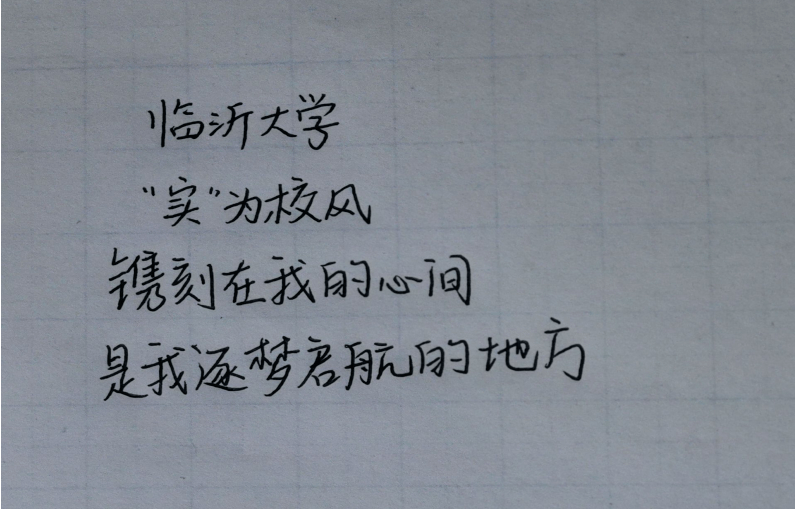 临沂大学
“实”为校风
镌刻在我的心间
是我逐梦启航的地方